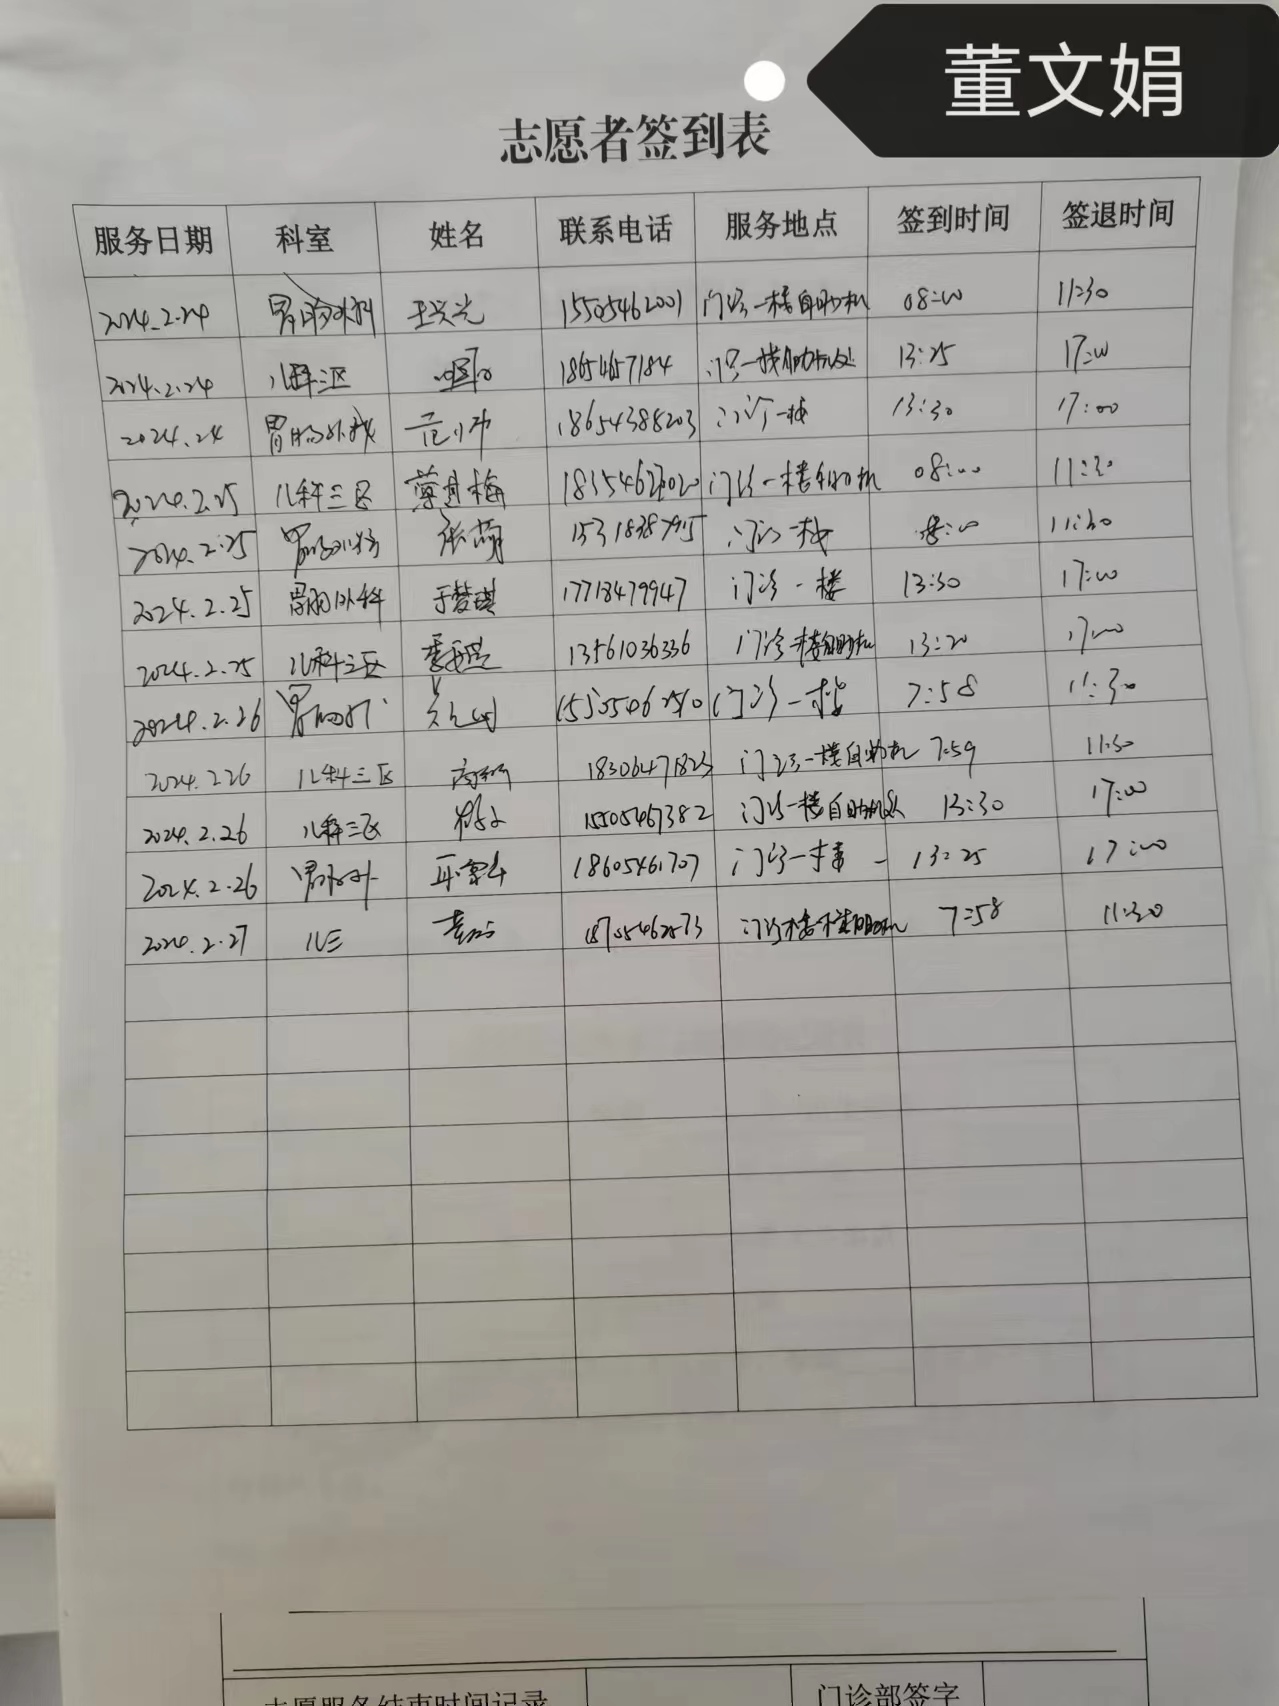 董文娟
志愿者签到表
服务日期 科室 姓名 联系电话 服务地点 签到时间 签退时间
2024.2.24 胃肠外科 王兴光 15505462001 门诊一楼自助机 08:00 11:30
2024.2.24 儿科三区 18654657184 13:25 17:00
2024.24 胃肠外科 范小冲 18654388203 门诊一楼 13:30 17:00
2024.2.25 儿科三区 门诊一楼自助机 08:00 11:30
2024.2.25 张萌 15318387915 门诊一楼 8:00 11:30
2024.2.25 胃肠外科 于梦琪 17718479947 门诊一楼 13:30 17:00
2024.2.25 儿科三区 13561036336 门诊一楼自助机 13:20 17:00
2024.2.26 胃肠外 门诊一楼 7:58 11:30
2024.2.26 儿科三区 18306471823 门诊一楼自助机 7:59 11:30
2024.2.26 儿科三区 15505467382 门诊一楼自助机处 13:30 17:00
2024.2.26 胃肠外 18605461707 门诊一楼 13:25 17:00
2024.2.27 儿三 7:58 11:30
志愿服务结束时间记录 门诊部签字